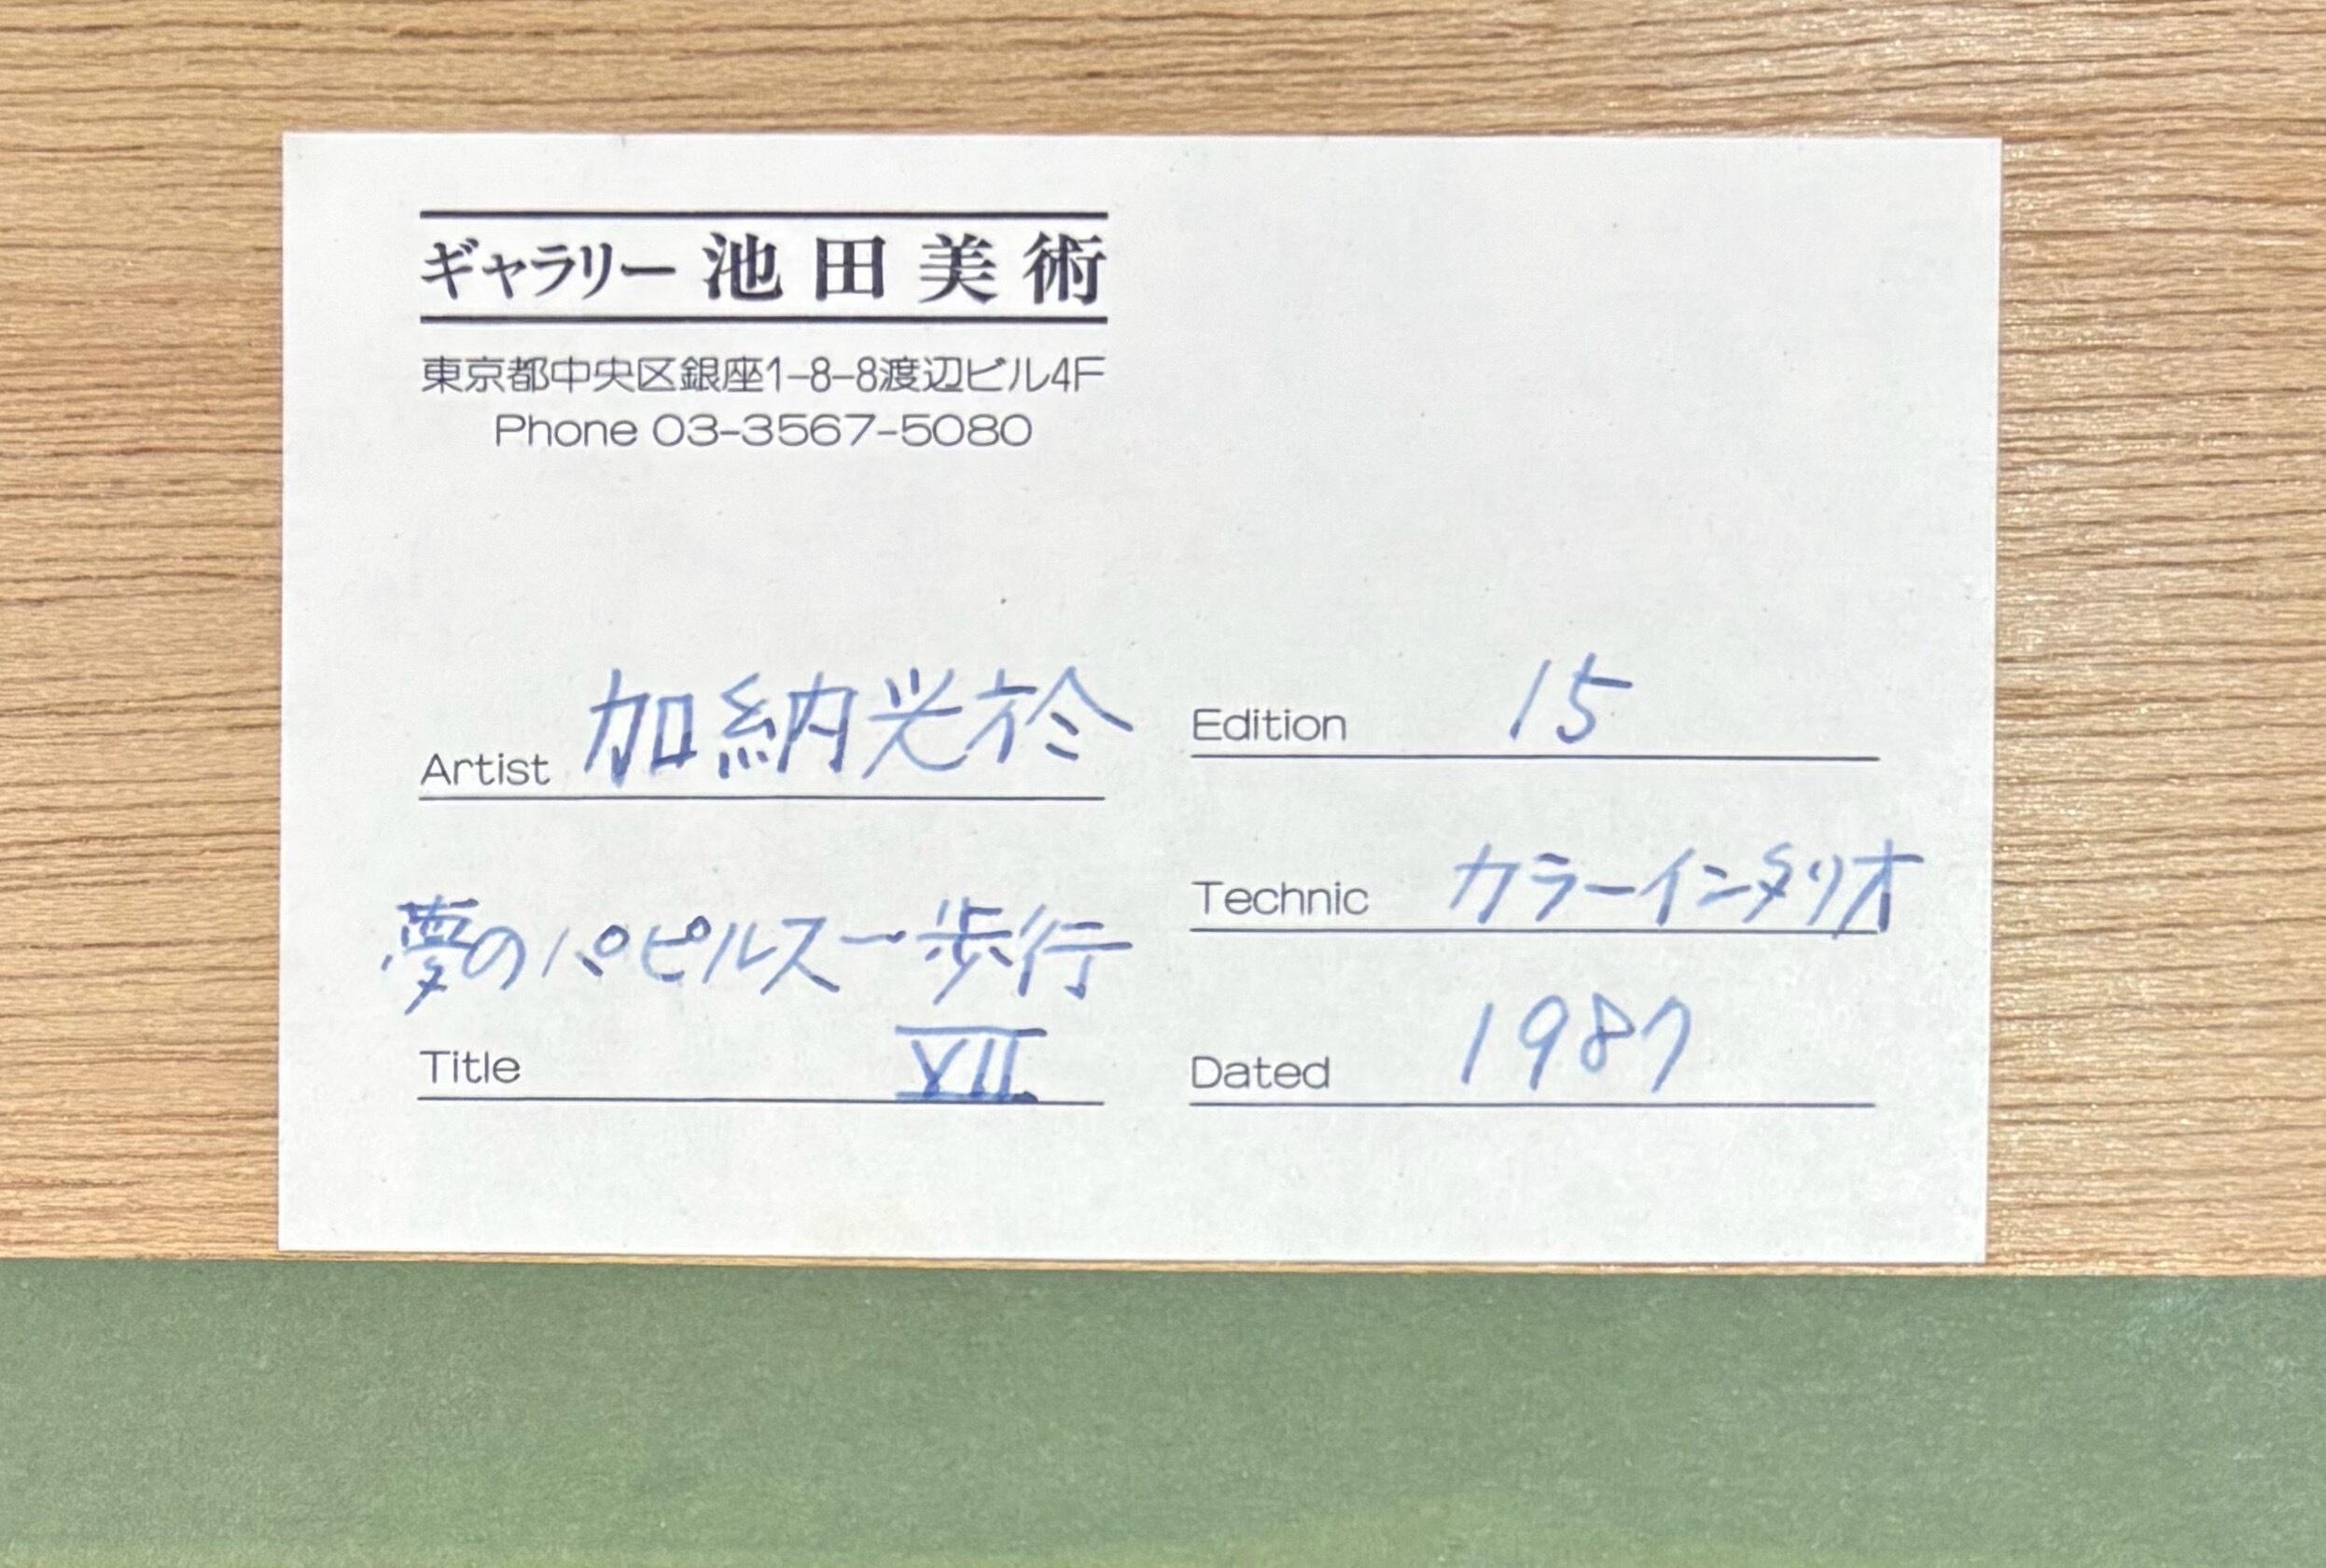 ギャラリー 池田美術
東京都中央区銀座1-8-8渡辺ビル4F
Phone 03-3567-5080
Artist 加納光於
夢のパピルスー歩行
Title VII
Edition 15
Technic カラーインタリオ
Dated 1987